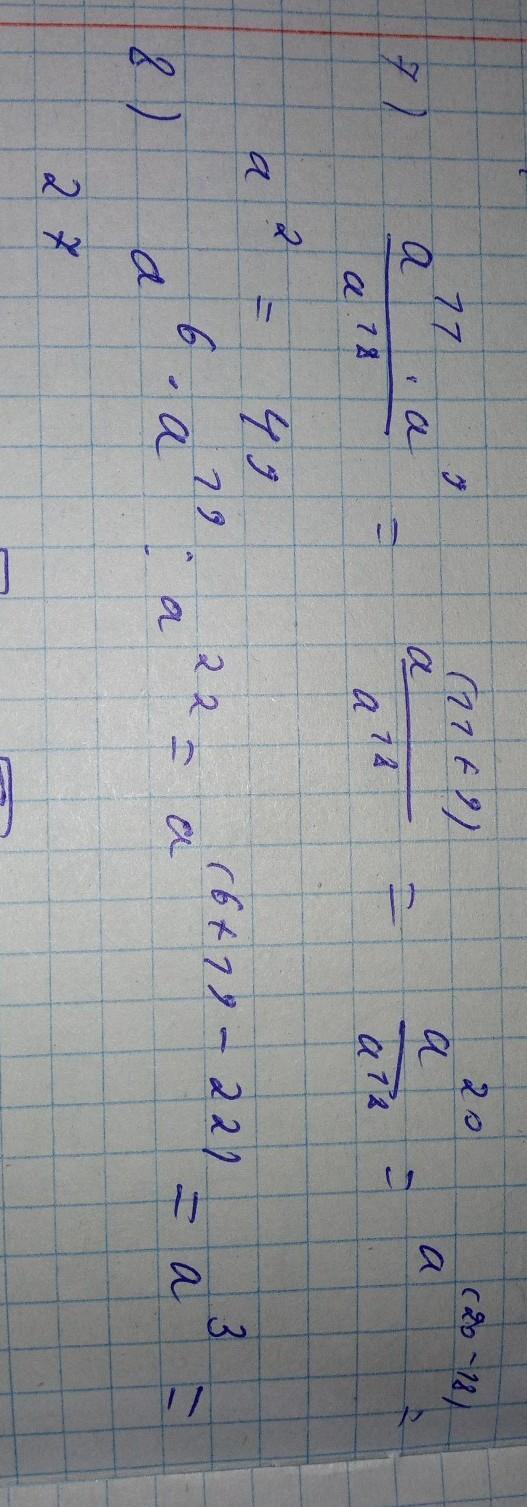 7) a^11 · a^9 / a^18 = a^(11+9) / a^18 = a^20 / a^18 = a^(20-18) =
a^2 = 49
8) a^6 · a^19 : a^22 = a^(6+19-22) = a^3 =
27